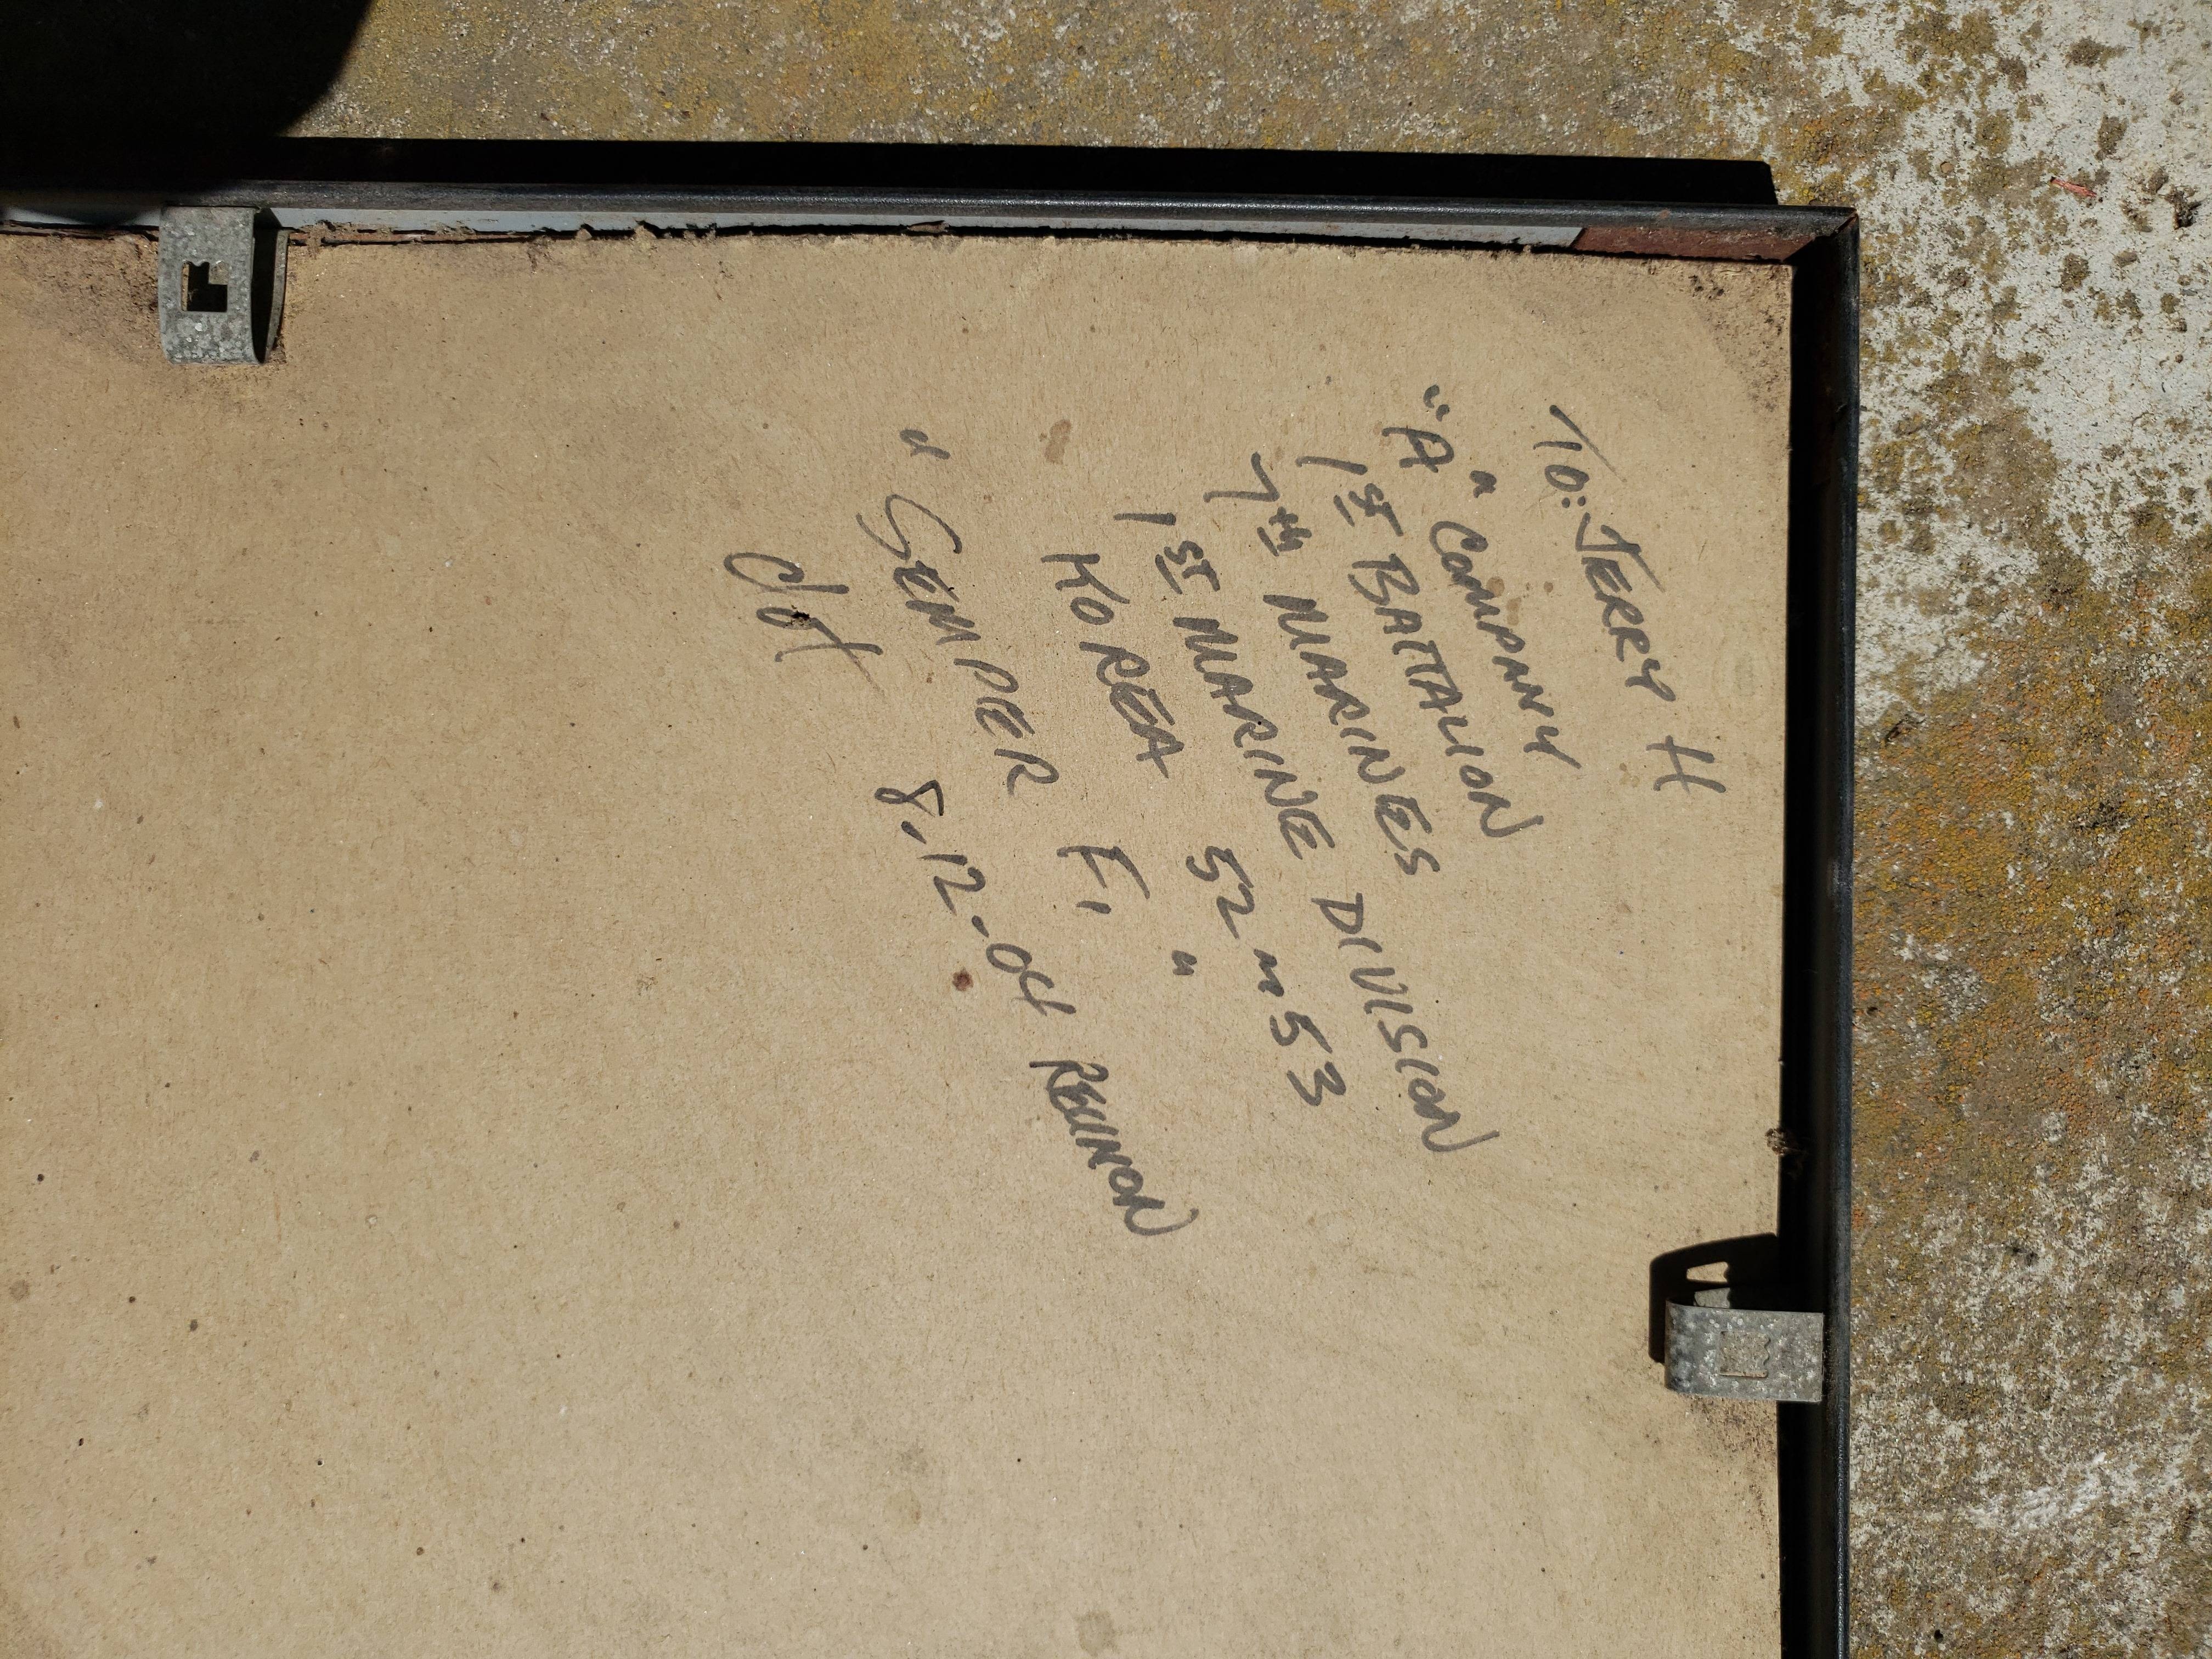 To: JERRY H
"A" COMPANY
1ST BATTALION
7th MARINES
1ST MARINE DIVISION
KOREA 52 " 53
"SEMPER FI"
8-12-04 REUNION